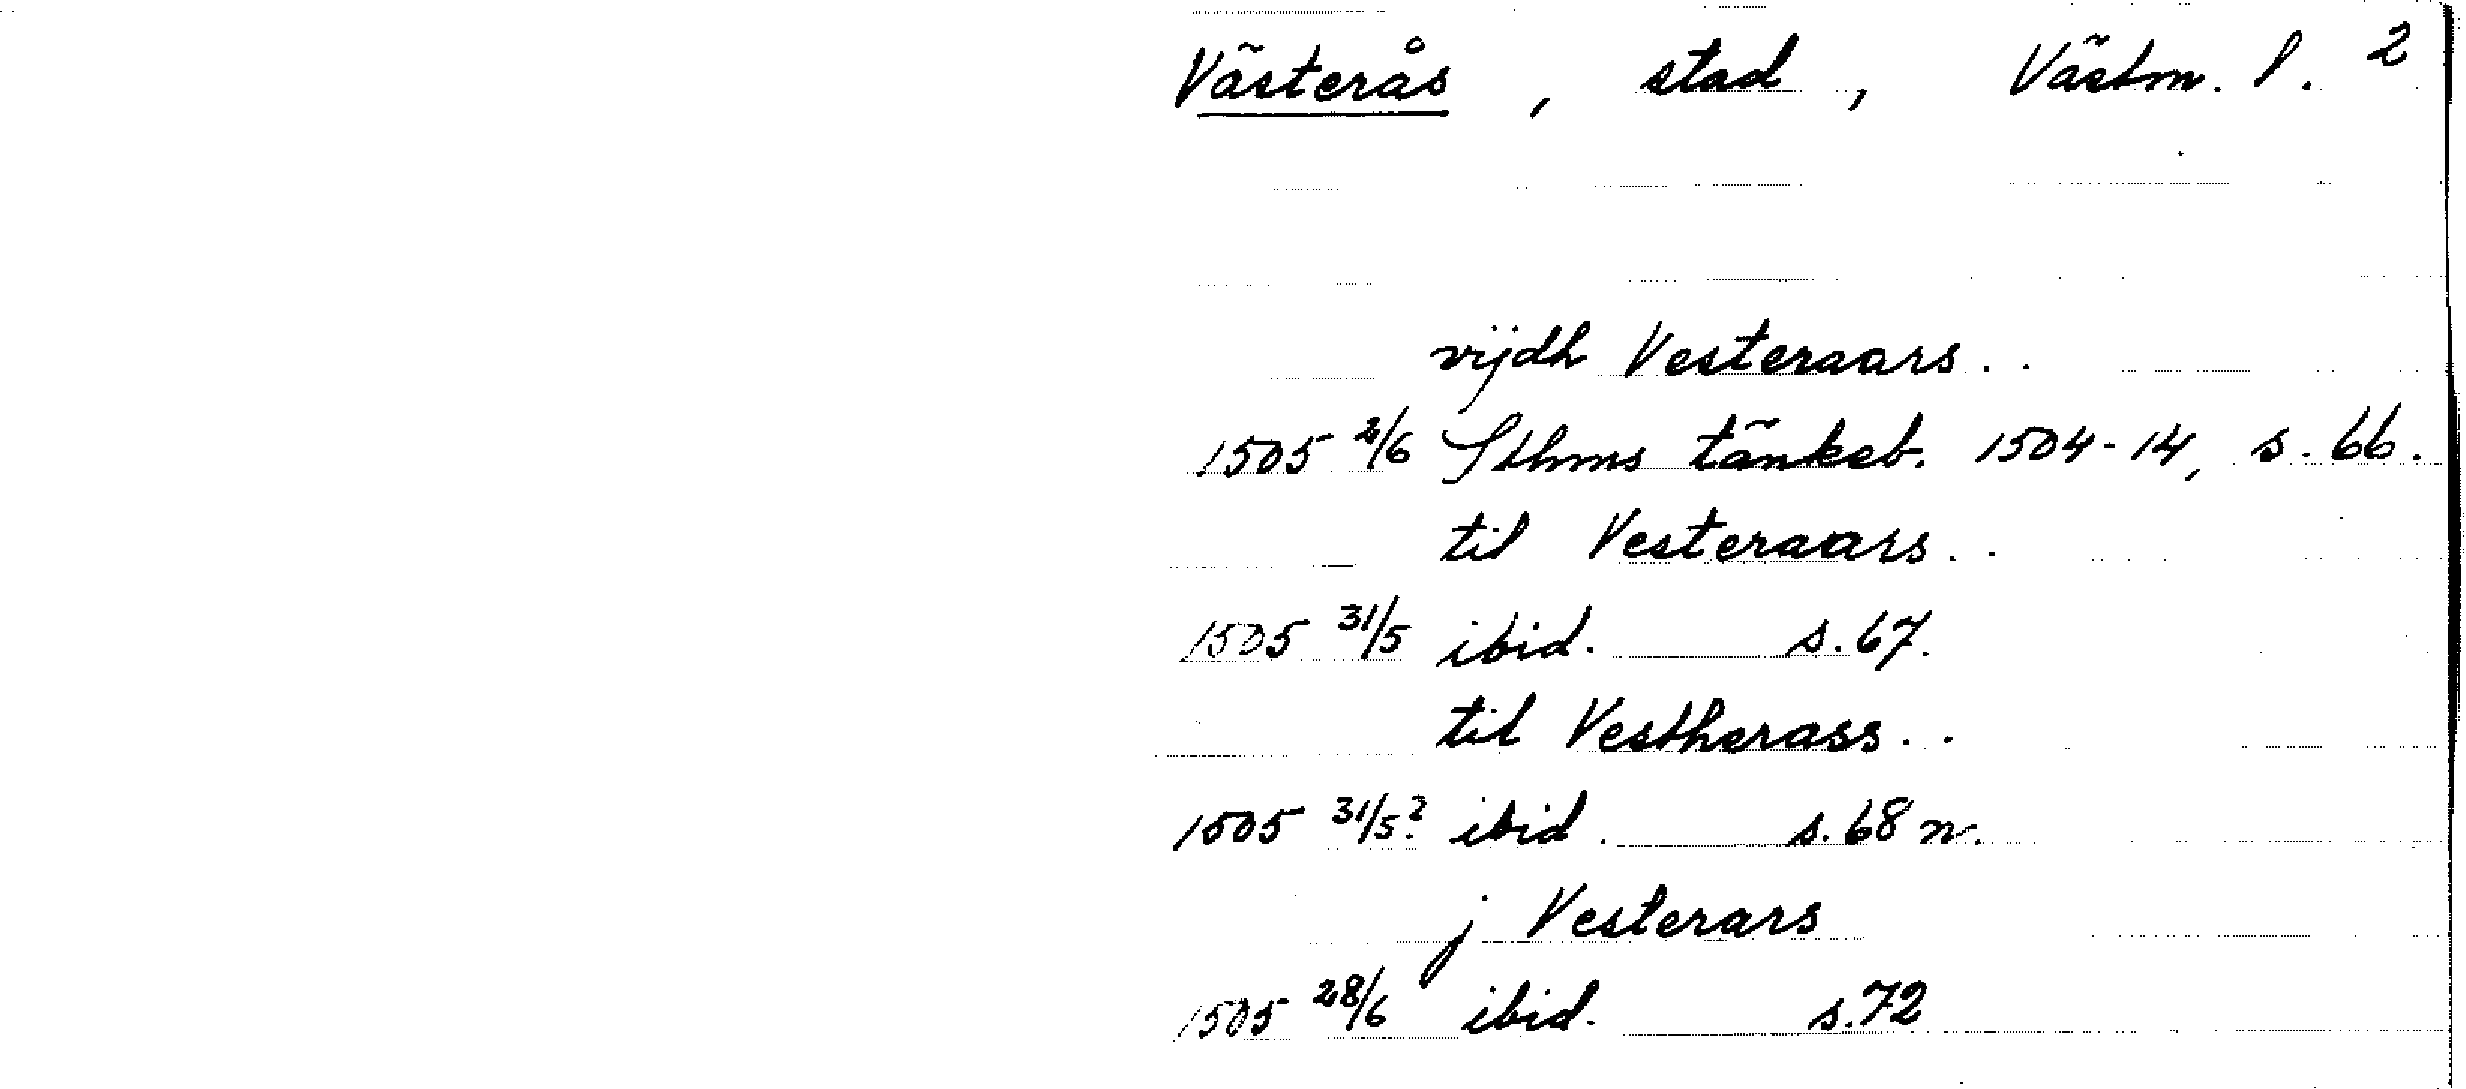 Västerås, stad, Västm. l. 2
vijdh Vesteraars..
1505 2/6 Sthms tänkeb. 1504-14, s. 66.
til Vesteraars..
1505 31/5 ibid. s. 67.
til Vestherass..
1505 31/5? ibid. s. 68 n.
j Vesterars
1505 28/6 ibid. s. 72